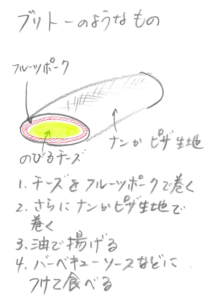 ブリトーのようなもの
フルーツポーク
ナンかピザ生地
のびるチーズ
1. チーズをフルーツポークで巻く
2. さらにナンかピザ生地で
巻く
3. 油で揚げる
4. バーベキューソースなどに
つけて食べる